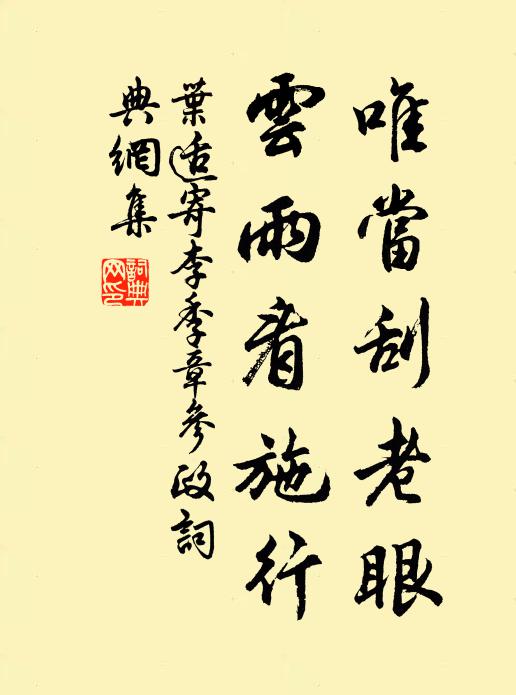 唯當刮老眼
雲雨看施行
葉适寄李季章參政詞
典網集
詞典
网印